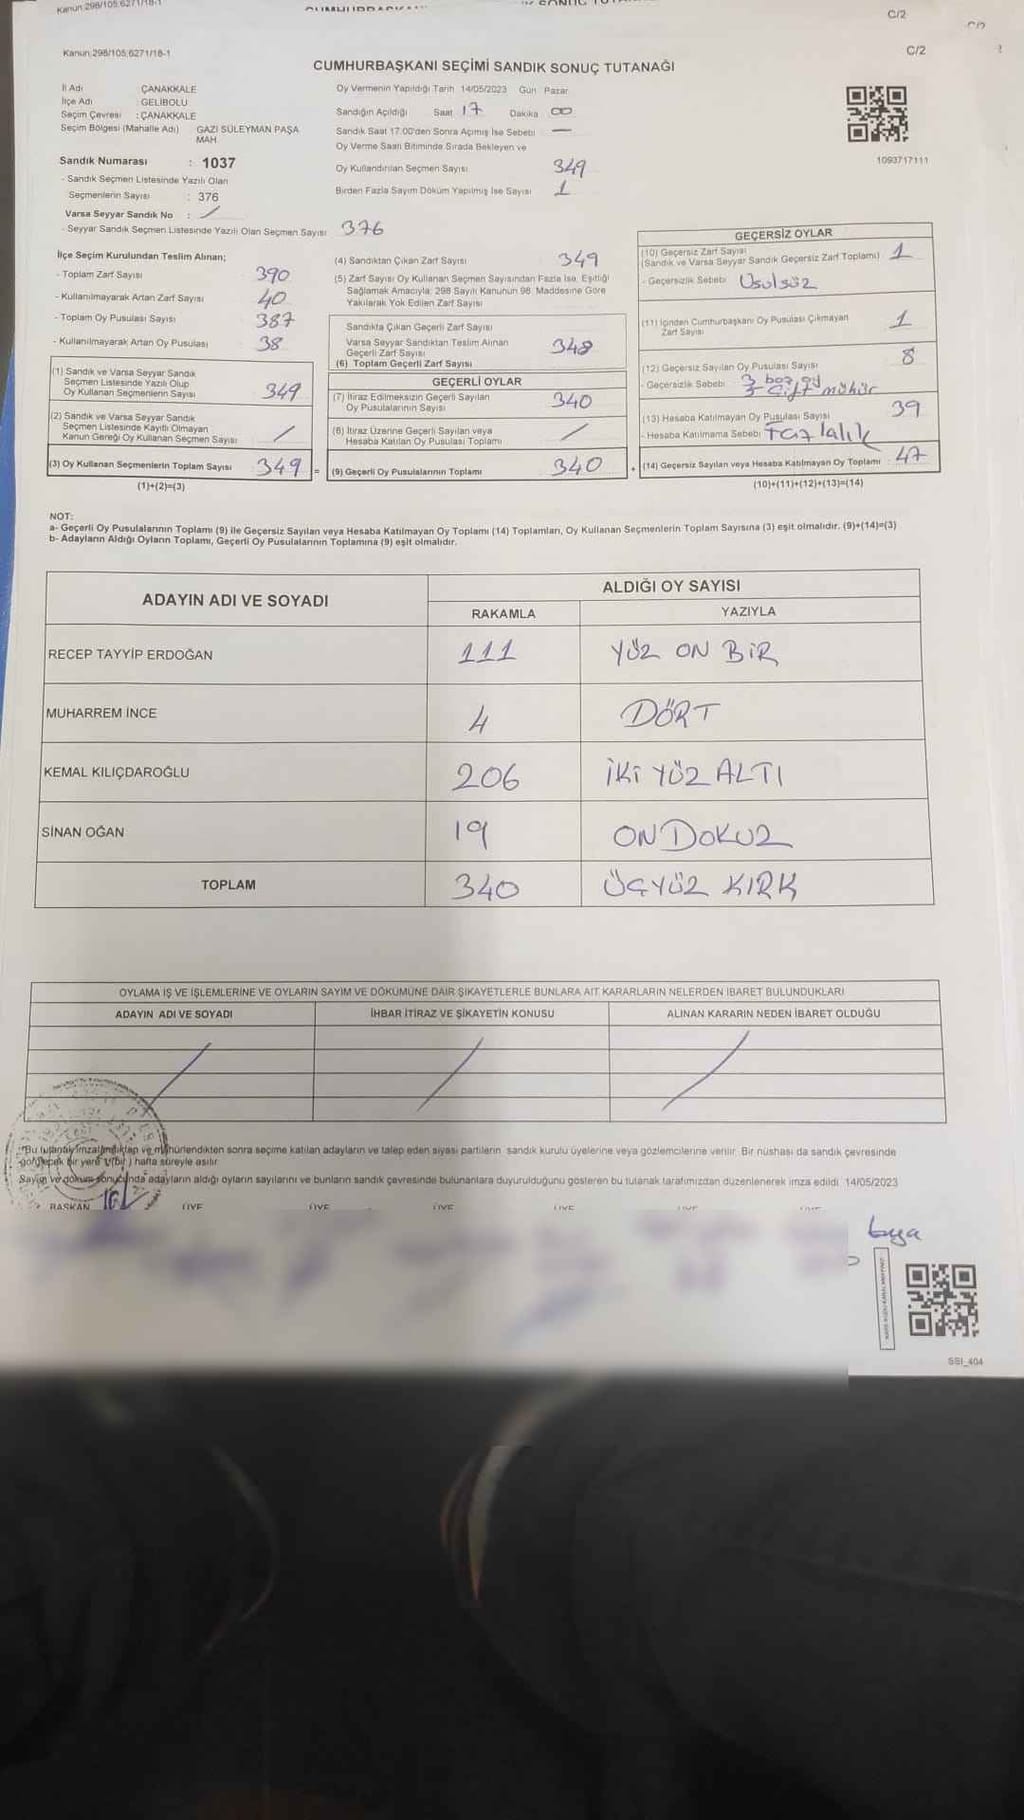 Kanun 298/105,6271/18-1
C/2
Kanun 298/105,6271/18-1
C/2
CUMHURBAŞKANI SEÇİMİ SANDIK SONUÇ TUTANAĞI
İl Adı ÇANAKKALE
İlçe Adı GELİBOLU
Seçim Çevresi : ÇANAKKALE
Seçim Bölgesi (Mahalle Adı) GAZİ SÜLEYMAN PAŞA MAH
Sandık Numarası : 1037
- Sandık Seçmen Listesinde Yazılı Olan
Seçmenlerin Sayısı : 376
Varsa Seyyar Sandık No :
- Seyyar Sandık Seçmen Listesinde Yazılı Olan Seçmen Sayısı 376
Oy Vermenin Yapıldığı Tarih 14/05/2023 Gün Pazar
Sandığın Açıldığı Saat 17 Dakika 00
Sandık Saat 17.00'den Sonra Açımış İse Sebebi —
Oy Verme Saati Bitiminde Sırada Bekleyen ve
Oy Kullandırılan Seçmen Sayısı 349
Birden Fazla Sayım Döküm Yapılmış İse Sayısı 1
1093717111
İlçe Seçim Kurulundan Teslim Alınan;
- Toplam Zarf Sayısı 390
- Kullanılmayarak Artan Zarf Sayısı 40
- Toplam Oy Pusulası Sayısı 387
- Kullanılmayarak Artan Oy Pusulası 38
(1) Sandık ve Varsa Seyyar Sandık
Seçmen Listesinde Yazılı Olup
Oy Kullanan Seçmenlerin Sayısı 349
(2) Sandık ve Varsa Seyyar Sandık
Seçmen Listesinde Kayıtlı Olmayan
Kanun Gereği Oy Kullanan Seçmen Sayısı /
(3) Oy Kullanan Seçmenlerin Toplam Sayısı 349 =
(1)+(2)=(3)
(4) Sandıktan Çıkan Zarf Sayısı 349
(5) Zarf Sayısı Oy Kullanan Seçmen Sayısından Fazla İse, Eşitliği
Sağlamak Amacıyla; 298 Sayılı Kanunun 98. Maddesine Göre
Yakılarak Yok Edilen Zarf Sayısı
Sandıkta Çıkan Geçerli Zarf Sayısı
Varsa Seyyar Sandıktan Teslim Alınan
Geçerli Zarf Sayısı 348
(6) Toplam Geçerli Zarf Sayısı
GEÇERLİ OYLAR
(7) İtiraz Edilmeksizin Geçerli Sayılan
Oy Pusulalarının Sayısı 340
(8) İtiraz Üzerine Geçerli Sayılan veya
Hesaba Katılan Oy Pusulası Toplamı /
(9) Geçerli Oy Pusulalarının Toplamı 340 +
GEÇERSİZ OYLAR
(10) Geçersiz Zarf Sayısı 1
(Sandık ve Varsa Seyyar Sandık Geçersiz Zarf Toplamı)
- Geçersizlik Sebebi Usulsüz
(11) İçinden Cumhurbaşkanı Oy Pusulası Çıkmayan
Zarf Sayısı 1
(12) Geçersiz Sayılan Oy Pusulası Sayısı 8
- Geçersizlik Sebebi 3 boş çift mühür
(13) Hesaba Katılmayan Oy Pusulası Sayısı 39
- Hesaba Katılmama Sebebi Fazlalık
(14) Geçersiz Sayılan veya Hesaba Katılmayan Oy Toplamı 47
(10)+(11)+(12)+(13)=(14)
NOT:
a- Geçerli Oy Pusulalarının Toplamı (9) ile Geçersiz Sayılan veya Hesaba Katılmayan Oy Toplamı (14) Toplamları, Oy Kullanan Seçmenlerin Toplam Sayısına (3) eşit olmalıdır. (9)+(14)=(3)
b- Adayların Aldığı Oyların Toplamı, Geçerli Oy Pusulalarının Toplamına (9) eşit olmalıdır.
ADAYIN ADI VE SOYADI
ALDIĞI OY SAYISI
RAKAMLA YAZIYLA
RECEP TAYYİP ERDOĞAN 111 YÜZ ON BİR
MUHARREM İNCE 4 DÖRT
KEMAL KILIÇDAROĞLU 206 İKİ YÜZ ALTI
SİNAN OĞAN 19 ON DOKUZ
TOPLAM 340 ÜÇYÜZ KIRK
OYLAMA İŞ VE İŞLEMLERİNE VE OYLARIN SAYIM VE DÖKÜMÜNE DAİR ŞİKAYETLERLE BUNLARA AİT KARARLARIN NELERDEN İBARET BULUNDUKLARI
ADAYIN ADI VE SOYADI İHBAR İTİRAZ VE ŞİKAYETİN KONUSU ALINAN KARARIN NEDEN İBARET OLDUĞU
"Bu tutanak imzalandıktan ve mühürlendikten sonra seçime katılan adayların ve talep eden siyasi partilerin sandık kurulu üyelerine veya gözlemcilerine verilir. Bir nüshası da sandık çevresinde
görülecek bir yere 1 (bir) hafta süreyle asılır.
Sayım ve döküm sonucunda adayların aldığı oyların sayılarını ve bunların sandık çevresinde bulunanlara duyurulduğunu gösteren bu tutanak tarafımızdan düzenlenerek imza edildi 14/05/2023
BAŞKAN ÜYE ÜYE ÜYE ÜYE ÜYE ÜYE
SSI_404